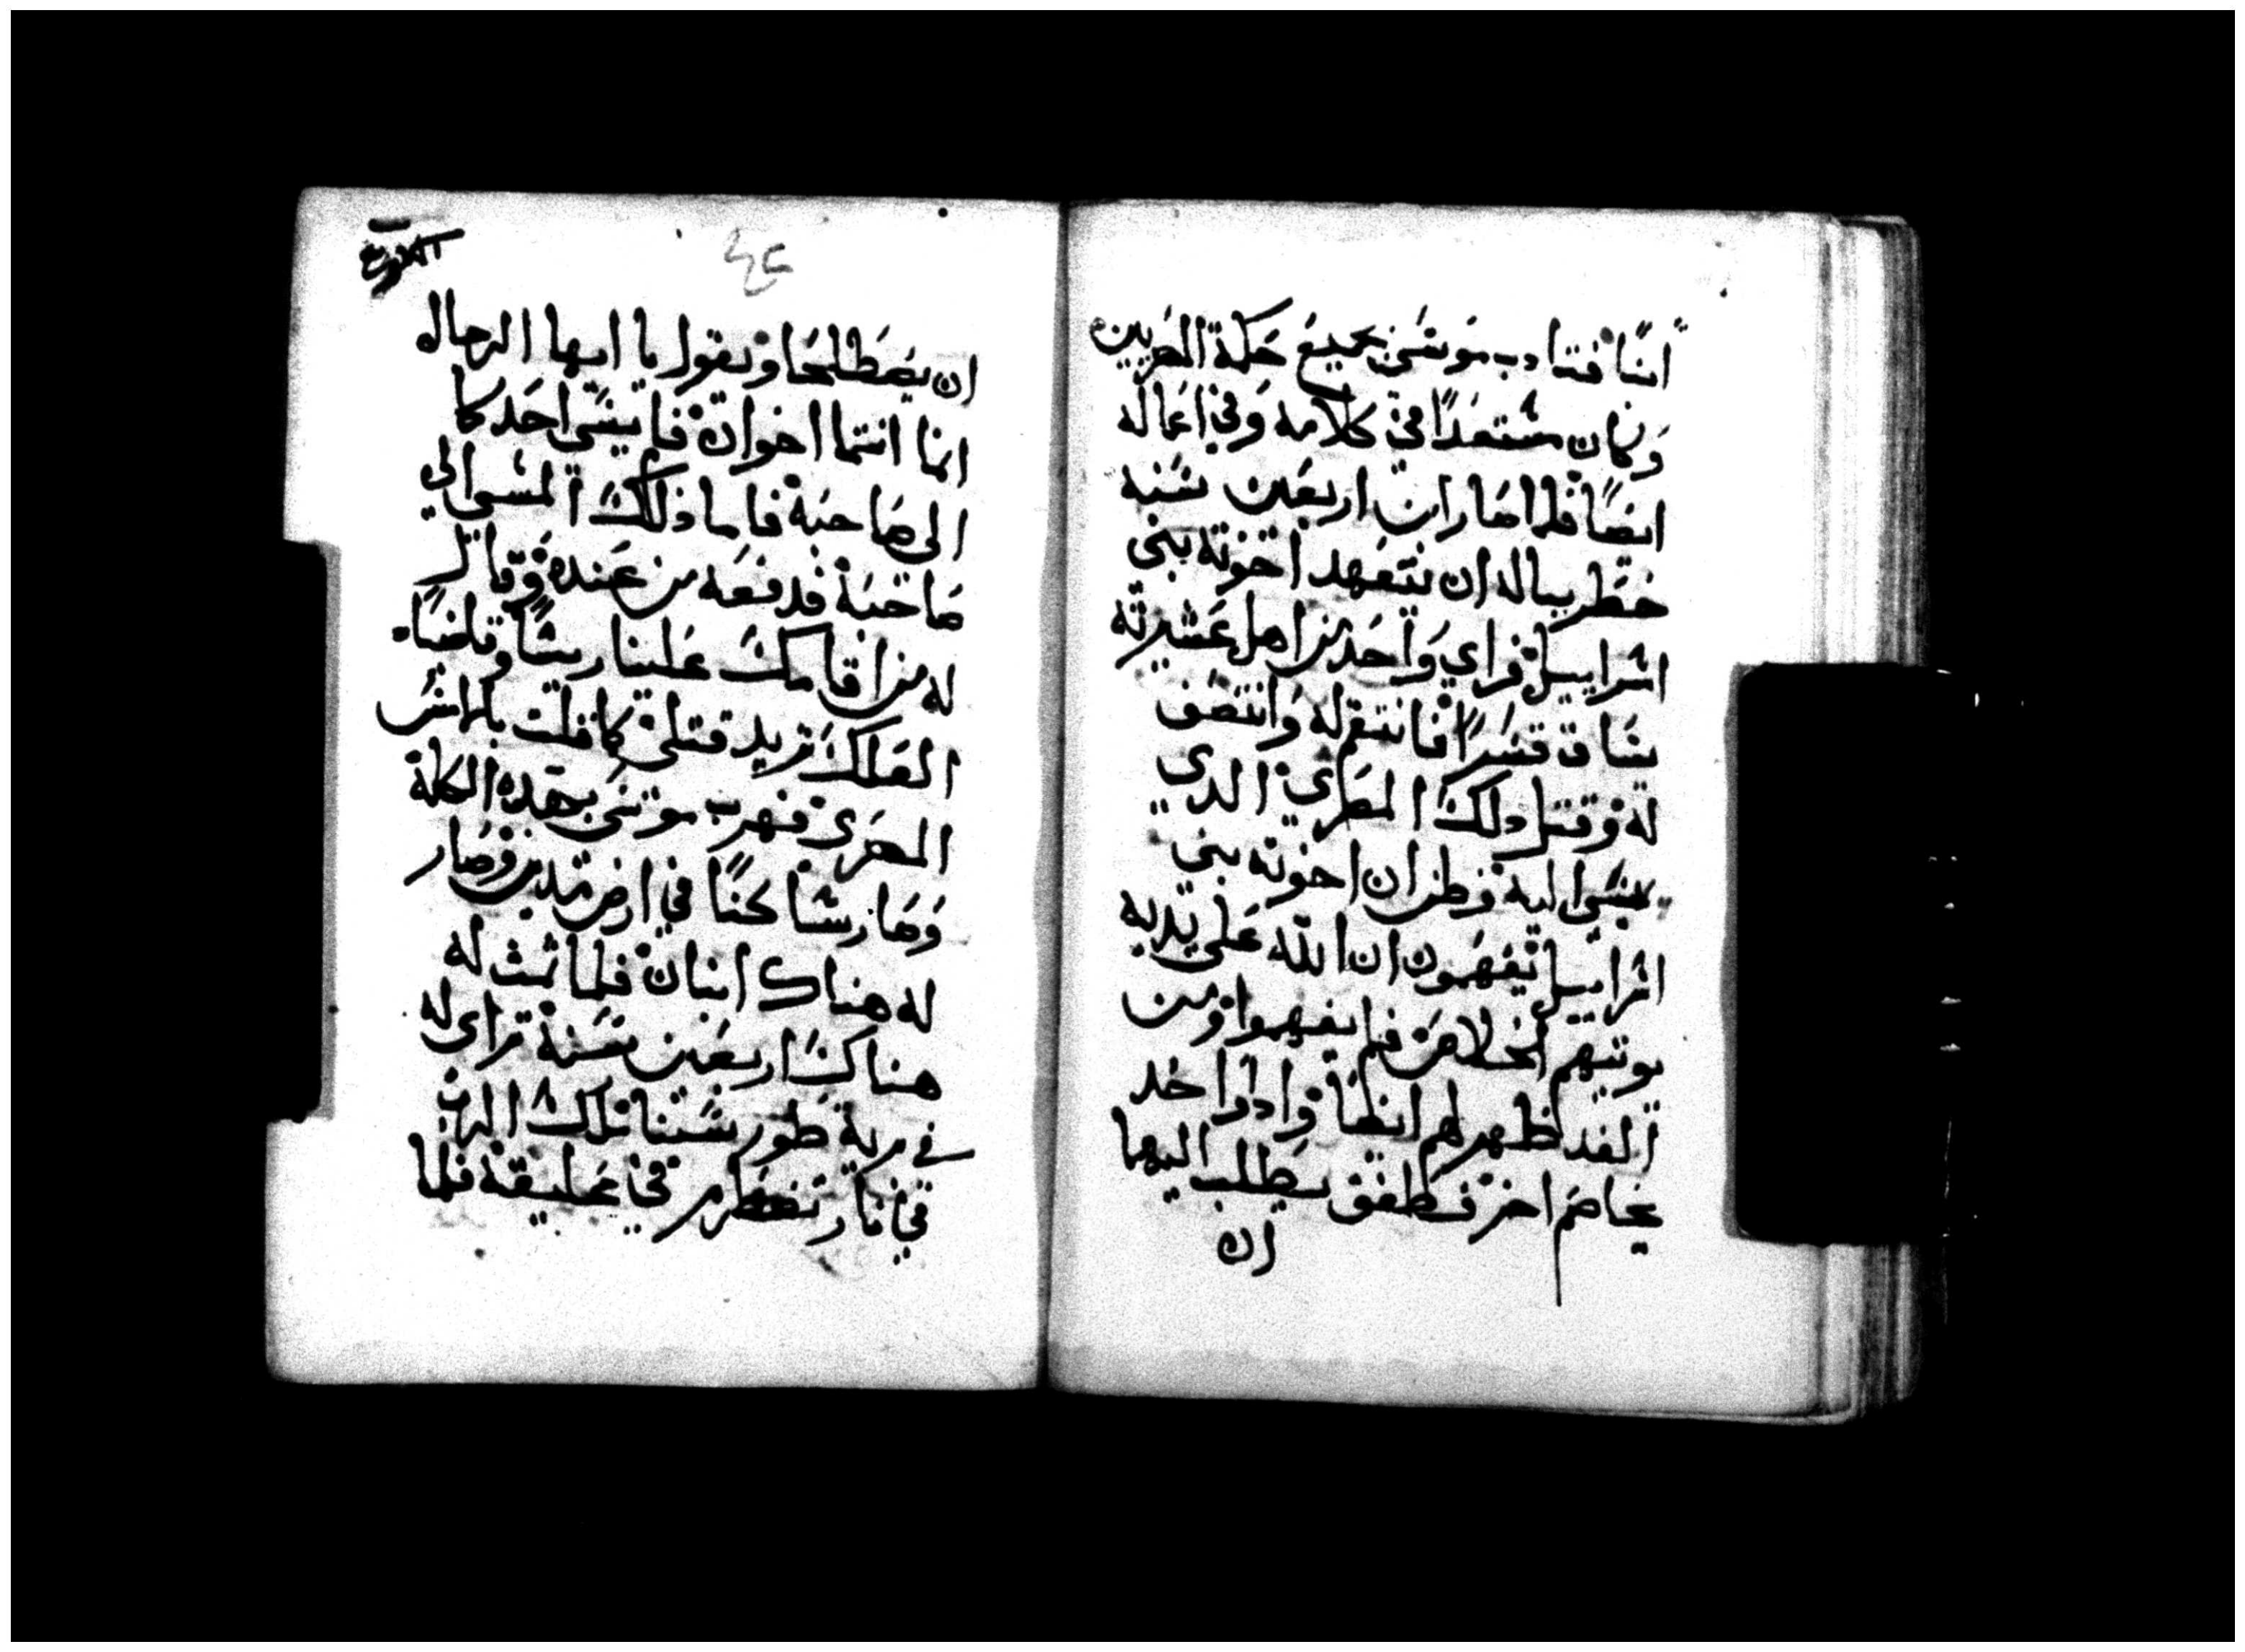 ابنًا فتادب موسى بجميع حكمة المصريين
وكان مستعدًا في كلامه وفي اعماله
ايضًا فلما صار ابن اربعين سنه
خطر بباله ان يتعهد اخوته بني
اسراييل فراي واحد من اهل عشيرته
يساق قسرًا فانتقم له وانتصف
له وقتل ذلك المصري الدي
يسي اليه فظن ان اخوته بني
اسراييل يفهمون ان الله على يديه
يوتيهم الخلاص فلم يفهموا ومن
الغد ظهر لهم ايضًا وادا واحد
يخاصم اخر فطفق يطلب اليهما
ان
٤٤
ان يصطلحا ويقول يا ايها الرجال
انما انتما اخوان فلم يسي احدكما
الى صاحبه فاما ذلك المسي الي
صاحبه فدفعه من عنده وقال
له من اقامك علينا ريسًا وقاضيًا
العلك تريد قتلي كما قتلت بالامس
المصري فهرب موسى بهده الكلمة
وصار ساكنًا في ارض مدين وصار
له هناك ابنان فلما تمت له
هناك اربعين سنة تراى له
في برية طور سينا ملاك الرب
في نار تضطرم في عليقة فلما